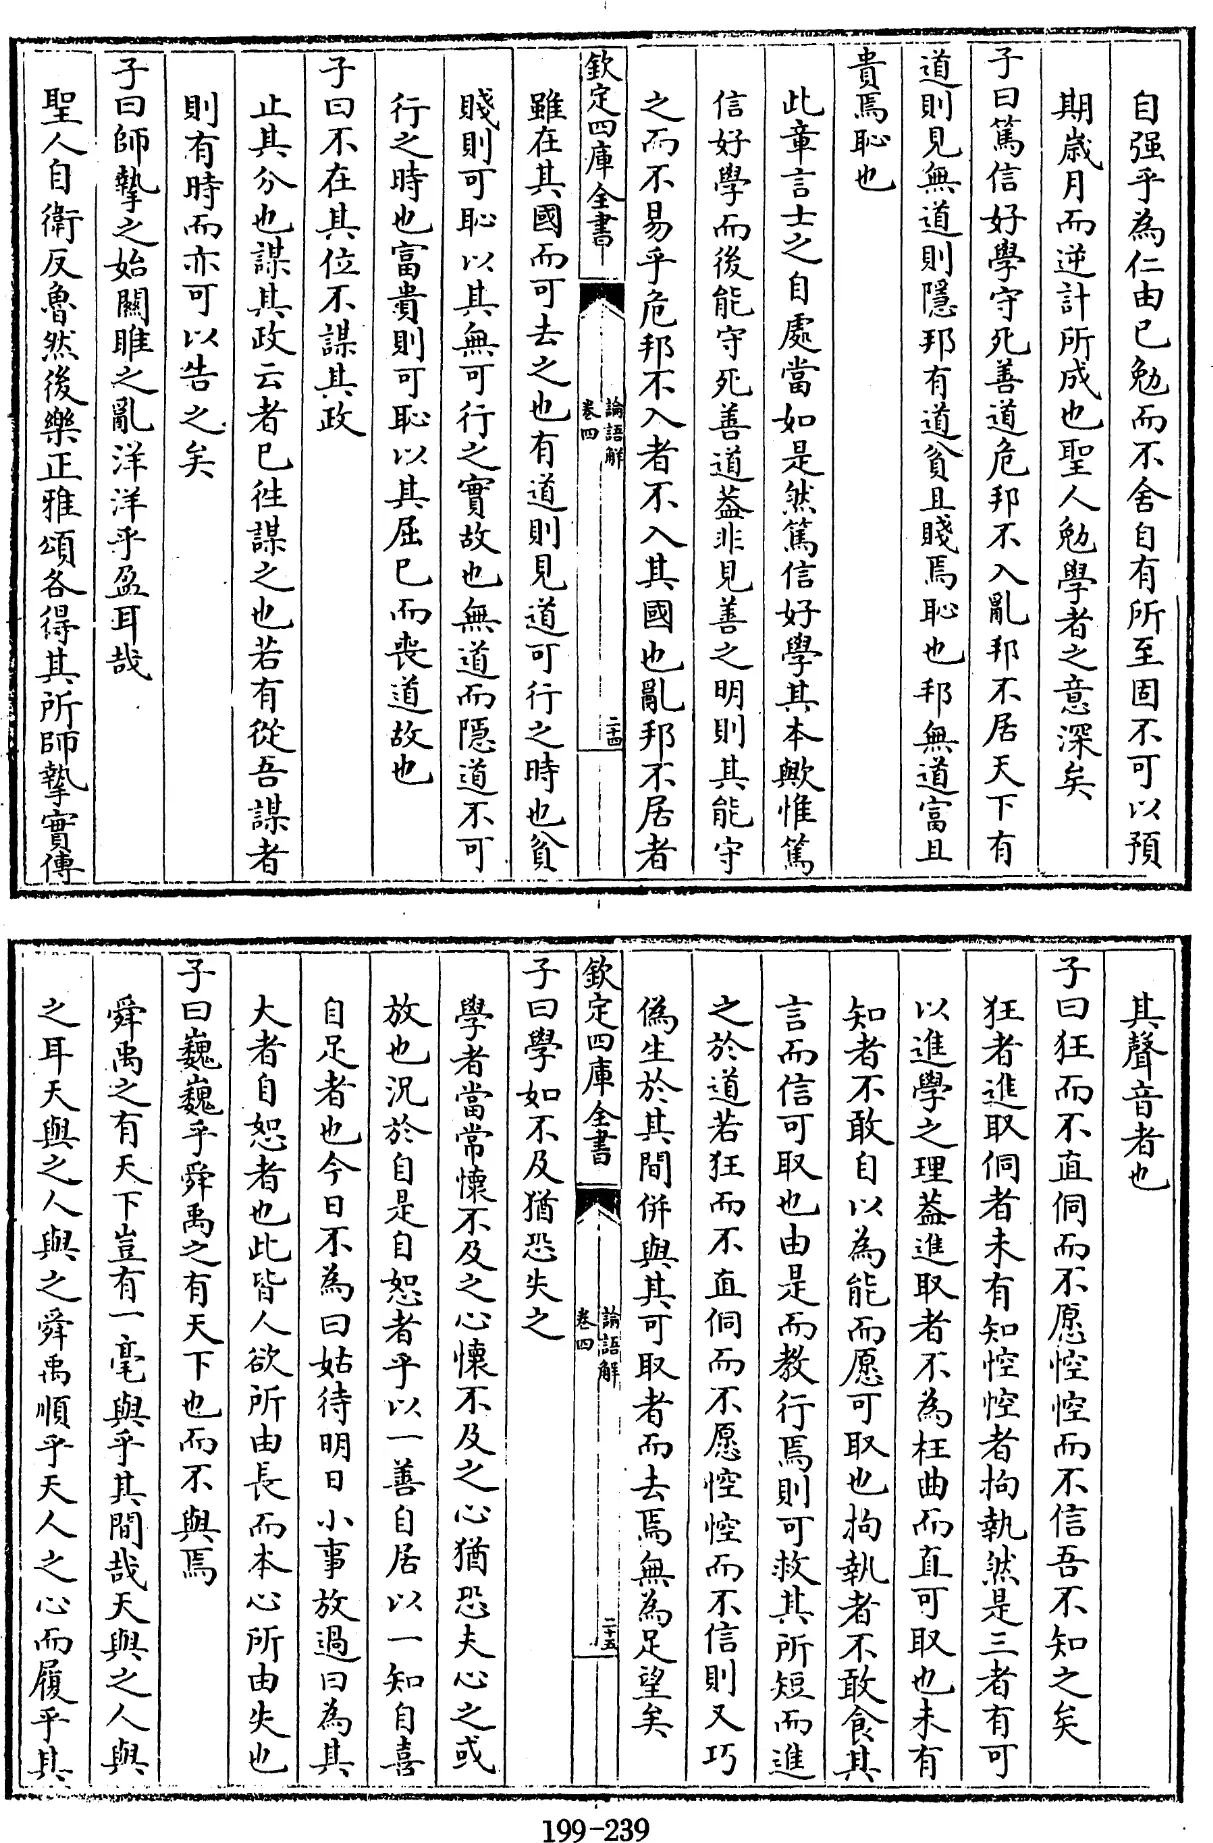 自强乎為仁由已勉而不舍自有所至固不可以預
期歲月而逆計所成也聖人勉學者之意深矣
子曰篤信好學守死善道危邦不入亂邦不居天下有
道則見無道則隱邦有道貧且賤焉恥也邦無道富且
貴焉恥也
此章言士之自處當如是然篤信好學其本歟惟篤
信好學而後能守死善道葢非見善之明則其能守
之而不易乎危邦不入者不入其國也亂邦不居者
欽定四庫全書
論語解
卷四
二十四
雖在其國而可去之也有道則見道可行之時也貧
賤則可恥以其無可行之實故也無道而隱道不可
行之時也富貴則可恥以其屈已而喪道故也
子曰不在其位不謀其政
止其分也謀其政云者已徃謀之也若有從吾謀者
則有時而亦可以告之矣
子曰師摯之始關雎之亂洋洋乎盈耳哉
聖人自衛反魯然後樂正雅頌各得其所師摯實傳
其聲音者也
子曰狂而不直侗而不愿悾悾而不信吾不知之矣
狂者進取侗者未有知悾悾者拘執然是三者有可
以進學之理葢進取者不為枉曲而直可取也未有
知者不敢自以為能而愿可取也拘執者不敢食其
言而信可取也由是而教行焉則可救其所短而進
之於道若狂而不直侗而不愿悾悾而不信則又巧
偽生於其間併與其可取者而去焉無為足望矣
欽定四庫全書
論語解
卷四
二十五
子曰學如不及猶恐失之
學者當常懷不及之心懷不及之心猶恐夫心之或
放也況於自是自恕者乎以一善自居以一知自喜
自足者也今日不為曰姑待明日小事放過曰為其
大者自恕者也此皆人欲所由長而本心所由失也
子曰巍巍乎舜禹之有天下也而不與焉
舜禹之有天下豈有一毫與乎其間哉天與之人與
之耳天與之人與之舜禹順乎天人之心而履乎其
199-239